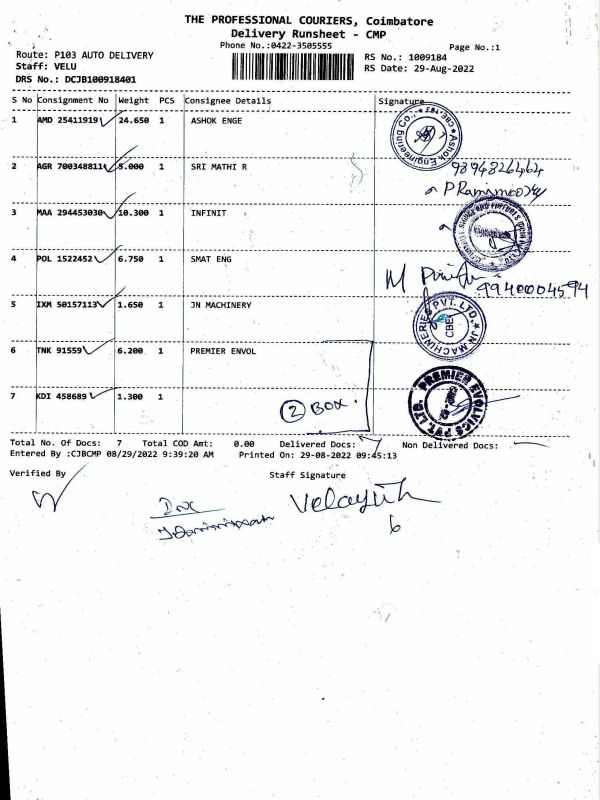 THE PROFESSIONAL COURIERS, Coimbatore
Delivery Runsheet - CMP
Phone No.:0422-3505555
Page No.:1
Route: P103 AUTO DELIVERY
RS No.: 1009184
Staff: VELU
RS Date: 29-Aug-2022
DRS No.: DCJB100918401
S No Consignment No Weight PCS Consignee Details Signature
1 AMD 25411919 24.650 1 ASHOK ENGE
2 AGR 700348811 5.000 1 SRI MATHI R
9894826464
3 MAA 294453030 10.300 1 INFINIT
4 POL 1522452 6.750 1 SMAT ENG
9940004594
5 IXM 50157113 1.650 1 JN MACHINERY
JN MACHINERIES PVT. LTD.
CBE
6 TNK 91559 6.200 1 PREMIER ENVOL
PREMIER EVOLVICS PVT. LTD.
7 KDI 458689 1.300 1
2 BOX.
Total No. Of Docs: 7 Total COD Amt: 0.00 Delivered Docs: 7 Non Delivered Docs: —
Entered By :CJBCMP 08/29/2022 9:39:20 AM Printed On: 29-08-2022 09:45:13
Verified By Staff Signature
Velayuth
6